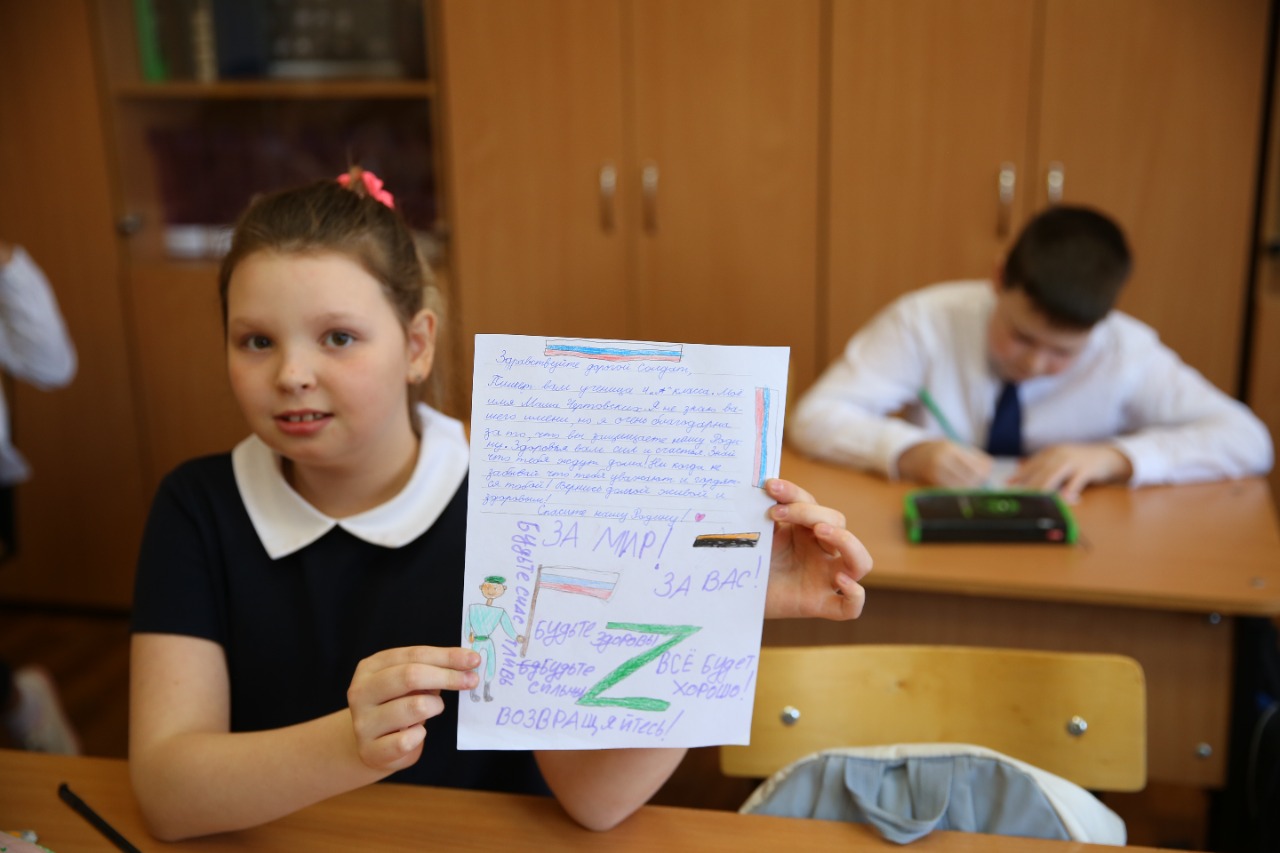 Здравствуйте дорогой Солдат,
Пишет вам ученица 4 "А" класса. Моё
имя Чертовских. Я не знаю ва-
шего имени, но я очень благодарна
за то, что вы защищаете нашу Роди-
ну. Здоровья вам сил и счастья. Знай
что тебя ждут дома! Ни когда не
забывай что тебя уважают и гордят-
ся тобой! Вернись домой живым и
здоровым!
Спасите нашу Родину!
ЗА МИР!
ЗА ВАС!
БУДЬТЕ
ЗДОРОВЫ
БУДЬТЕ
СИЛЬНЫ
Z
ВСЁ БУДЕТ
ХОРОШО!
ВОЗВРАЩЯЙТЕСЬ!